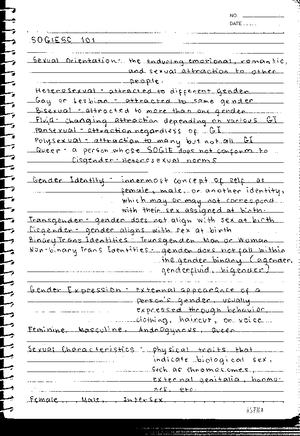 NO.
DATE
SOGIESC 101
Sexual Orientation - the enduring emotional, romantic,
and sexual attraction to other
people.
Heterosexual - attracted to different gender
Gay or Lesbian - attracted to same gender
Bisexual - attracted to more than one gender
Fluid - changing attraction depending on various GI
Pansexual - attraction regardless of GI
Polysexual - attraction to many but not all GI
Queer - a person whose SOGIE does not conform to
Cisgender-Heterosexual norms
Gender Identity - innermost concept of self as
female, male, or another identity,
which may or may not correspond
with their sex assigned at birth.
Transgender - gender does not align with sex at birth
Cisgender - gender aligns with sex at birth
Binary Trans Identities - Transgender Man or Woman
Non-binary Trans Identities - gender does not fall within
the gender binary (agender,
genderfluid, bigender)
Gender Expression - external appearance of a
person's gender, usually
expressed through behavior,
clothing, haircut, or voice
Feminine, Masculine, Androgynous, Queer
Sexual Characteristics - physical traits that
indicate biological sex,
such as chromosomes,
external genitalia, hormo-
nes, etc.
Female, Male, Intersex